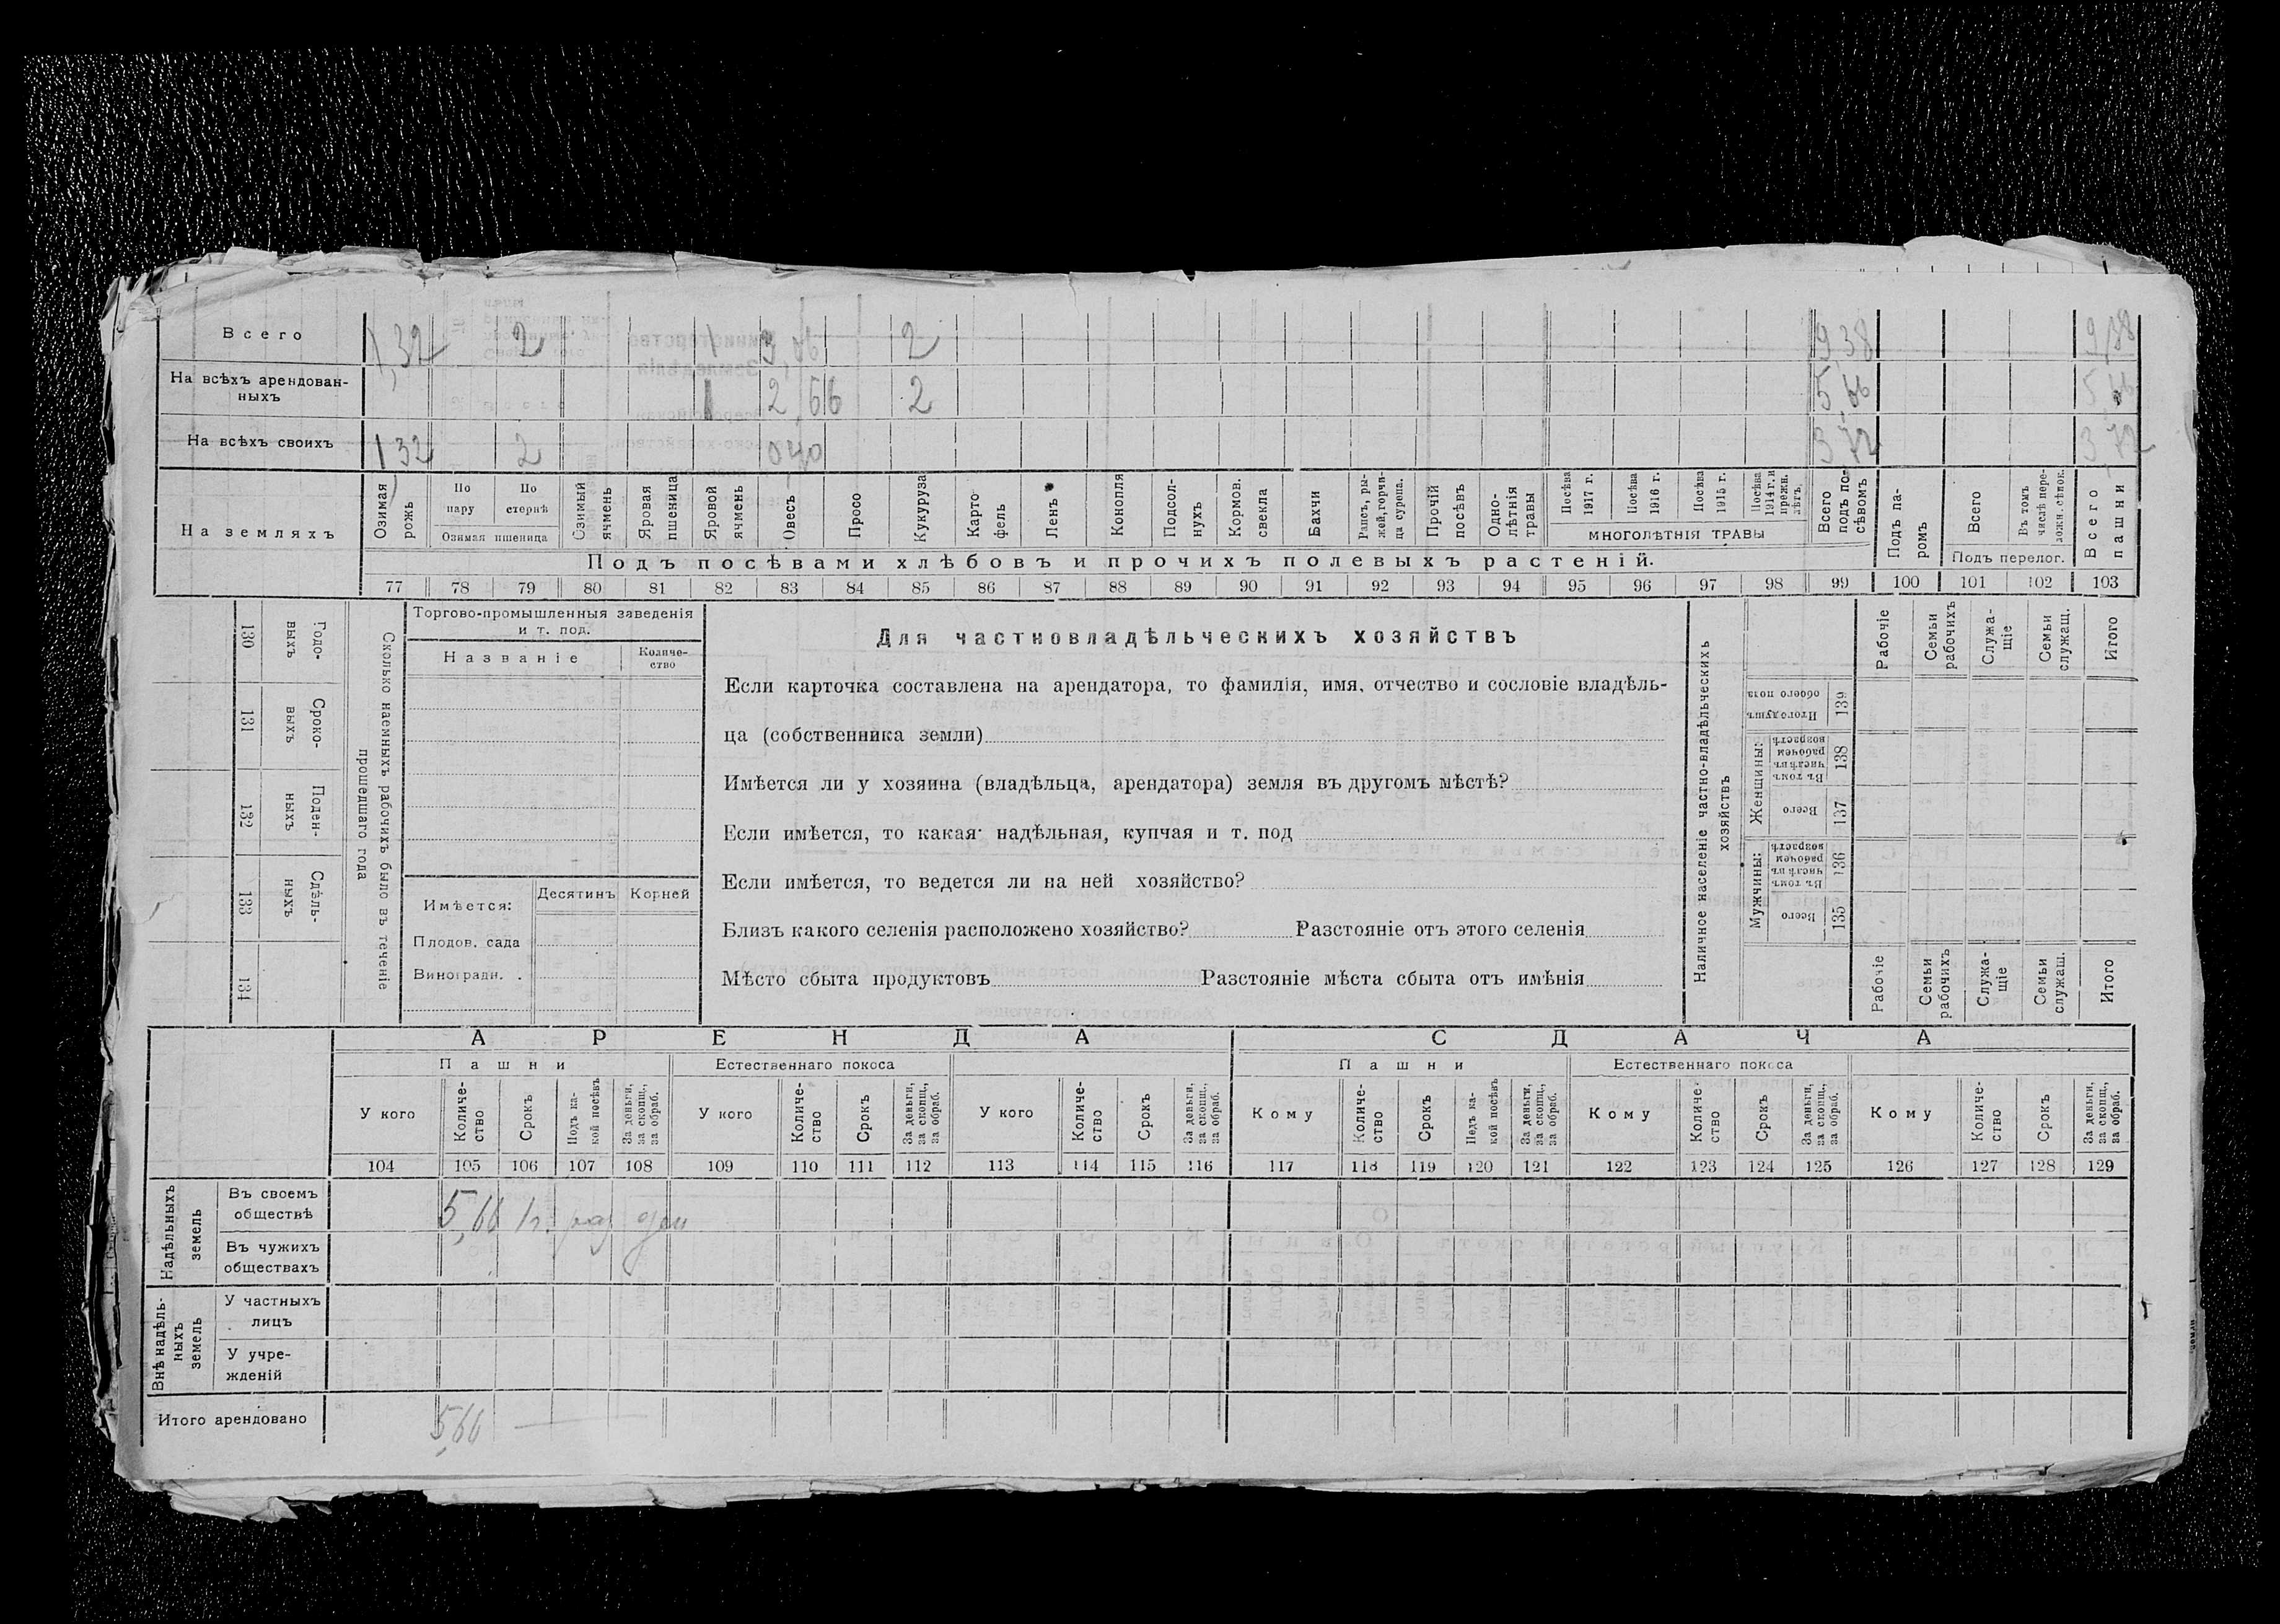 Всего 1,32 2 1 3,06 2 9,38 9,38
На всѣхъ арендован-
ныхъ 1 2,66 2 5,66 5,66
На всѣхъ своихъ 1,32 2 0,40 3,72 3,72
На земляхъ
Озимая рожь
По пару
По стернѣ
Озимая пшеница
Озимый ячмень
Яровая пшеница
Яровой ячмень
Овесъ
Просо
Кукуруза
Карто-
фель
Ленъ
Конопля
Подсол-
нухъ
Кормов. свекла
Бахчи
Рапсъ, ры-
жей, горчи-
ца сурепа.
Прочій посѣвъ
Одно-
лѣтнія
травы
Посѣва 1917 г.
Посѣва 1916 г.
Посѣва 1915 г.
Посѣва 1914 г. и прежн. лѣтъ.
МНОГОЛѢТНІЯ ТРАВЫ
Всего подъ по-
сѣвомъ
Подъ па-
ромъ
Всего
Въ томъ числѣ пере-
ложн. сѣнок.
Подъ перелог.
Всего пашни
Подъ посѣвами хлѣбовъ и прочихъ полевыхъ растеній.
77 78 79 80 81 82 83 84 85 86 87 88 89 90 91 92 93 94 95 96 97 98 99 100 101 102 103
Годо-
выхъ
130
Сроко-
выхъ
131
Поден-
ныхъ
132
Сдѣль-
ныхъ
133
134
Сколько наемныхъ рабочихъ было въ теченіе
прошедшаго года
Торгово-промышленныя заведенія
и т. под.
Названіе
Количе-
ство
Имѣется:
Десятинъ Корней
Плодов. сада
Виноградн. .
Для частновладѣльческихъ хозяйствъ
Если карточка составлена на арендатора, то фамилія, имя, отчество и сословіе владѣль-
ца (собственника земли)
Имѣется ли у хозяина (владѣльца, арендатора) земля въ другомъ мѣстѣ?
Если имѣется, то какая: надѣльная, купчая и т. под
Если имѣется, то ведется ли на ней хозяйство?
Близъ какого селенія расположено хозяйство? Разстояніе отъ этого селенія
Мѣсто сбыта продуктовъ Разстояніе мѣста сбыта отъ имѣнія
Наличное населеніе частно-владѣльческихъ
хозяйствъ
Итого душъ
обоего пола
139
Женщины:
Въ томъ
числѣ въ
рабочемъ
возрастѣ
138
Всего
137
Мужчины:
Въ томъ
числѣ въ
рабочемъ
возрастѣ
136
Всего
135
Рабочіе
Семьи рабочихъ
Служа-
щіе
Семьи служащ.
Итого
Рабочіе
Семьи рабочихъ
Служа-
щіе
Семьи служащ.
Итого
АРЕНДА СДАЧА
Пашни Естественнаго покоса Пашни Естественнаго покоса
У кого
Количе-
ство
Срокъ
Подъ ка-
кой посѣвъ
За деньги,
за скопщ.,
за обраб.
У кого
Количе-
ство
Срокъ
За деньги,
за скопщ.,
за обраб.
У кого
Количе-
ство
Срокъ
За деньги,
за скопщ.,
за обраб.
Кому
Количе-
ство
Срокъ
Подъ ка-
кой посѣвъ
За деньги,
за скопщ.,
за обраб.
Кому
Количе-
ство
Срокъ
За деньги,
за скопщ.,
за обраб.
Кому
Количе-
ство
Срокъ
За деньги,
за скопщ.,
за обраб.
104 105 106 107 108 109 110 111 112 113 114 115 116 117 118 119 120 121 122 123 124 125 126 127 128 129
Надѣльныхъ
земель
Въ своемъ
обществѣ 5,66 1 г.
Въ чужихъ
обществахъ
Внѣ надѣль-
ныхъ
земель
У частныхъ
лицъ
У учре-
жденій
Итого арендовано 5,66 —